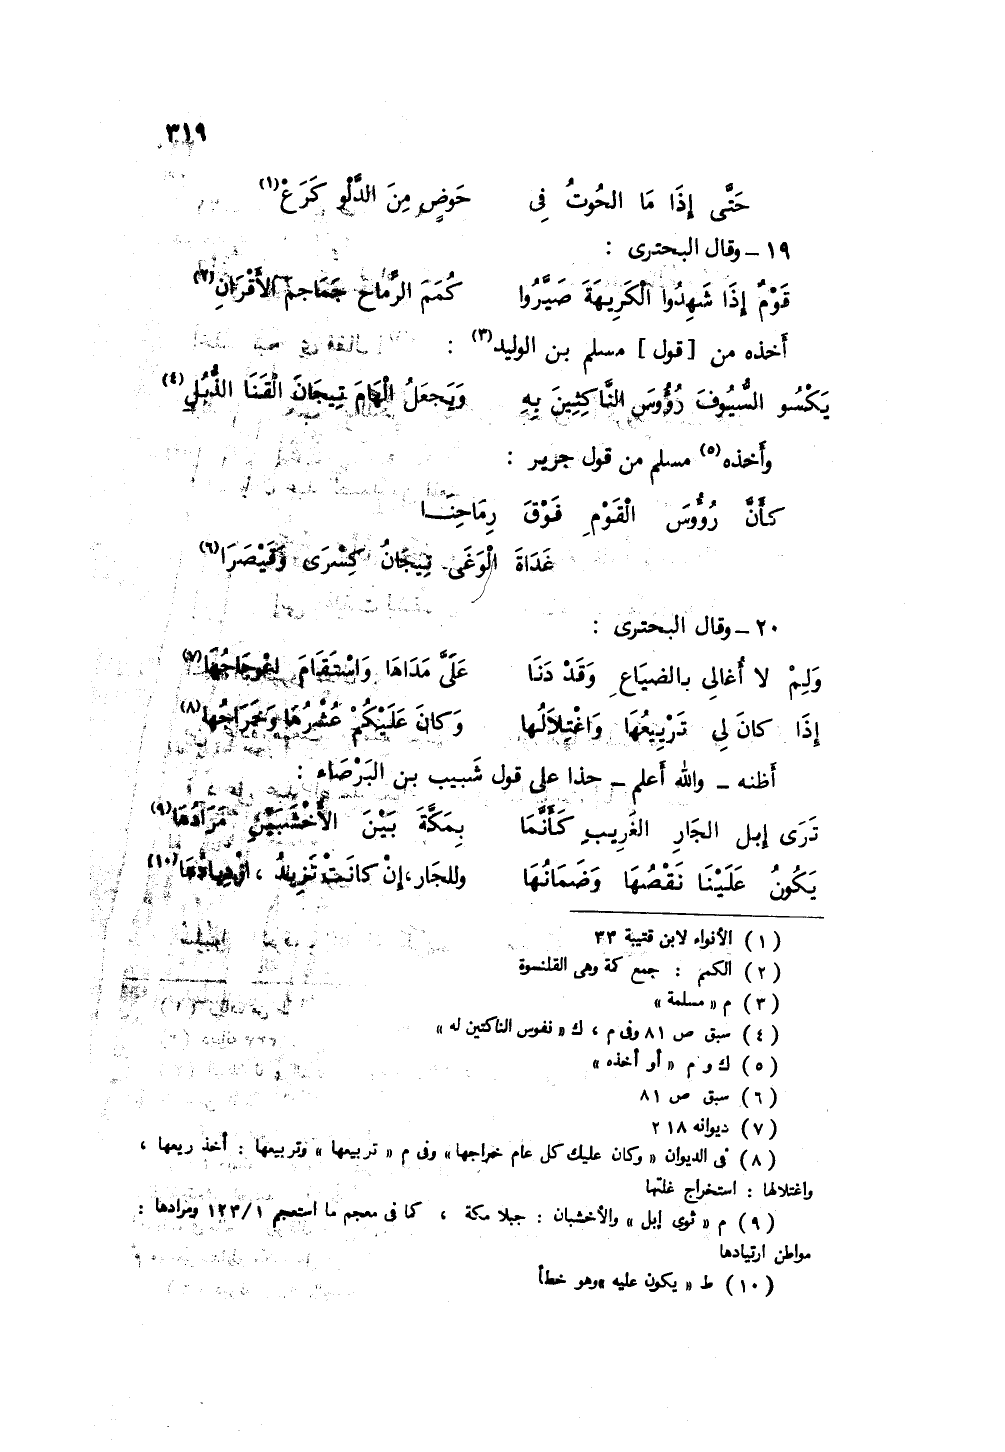 ٣١٩
حَتَّى إِذَا مَا الحُوتُ فِى حَوْضٍ مِنَ الدَّلْوِ كَرَعْ(١)
١٩ – وقال البحترى :
قَوْمٌ إِذَا شَهِدُوا الْكَرِيهَةَ صَيَّرُوا كُمَمَ الرِّمَاحِ جَمَاجِمَ الأَقْرَانِ(٢)
أخذه من [ قول ] مسلم بن الوليد(٣) :
يَكْسُو السُّيُوفَ رُؤُوسَ النَّاكِثِينَ بِهِ وَيَجعَلُ الْهَامَ تِيجَانَ الْقَنَا الذُّبُلِ(٤)
وأَخذه(٥) مسلم من قول جرير :
كأَنَّ رُؤُوسَ الْقَوْمِ فَوْقَ رِمَاحِنَا
غَدَاةَ الْوَغَى تِيجَانُ كِسْرَى وَقَيْصَرَا(٦)
٢٠ – وقال البحترى :
وَلِمْ لا أُغالِى بالضيَاعِ وَقَدْ دَنَا عَلَىَّ مَدَاهَا وَاسْتَقَامَ اعْوِجَاجُهَا(٧)
إِذَا كانَ لِى تَرْيِيعُهَا وَاغْتِلاَلُها وَكانَ عَلَيْكُمْ عُشْرُهَا وَخَرَاجُها(٨)
أَظنه – والله أَعلم – حذا على قول شَبيب بن البَرْصَاء :
تَرَى إبل الجَارِ الغَرِيبِ كَأَنَّمَا بِمَكَّةَ بَيْنَ الأَخْشَبَيْنِ مَرَادُهَا(٩)
يَكُونُ عَلَيْنَا نَقْصُهَا وَضَمَانُهَا وللجَار،إنْ كانَتْ تَزِيدُ ، ازْدِيادُهَا(١٠)
(١) الأنواء لابن قتيبة ٣٣
(٢) الكم : جمع كمة وهى القلنسوة
(٣) م « مسلمة »
(٤) سبق ص ٨١ وفى م ، ك « نفوس الناكثين له »
(٥) ك و م « أو أخذه »
(٦) سبق ص ٨١
(٧) ديوانه ٢١٨
(٨) فى الديوان « وكان عليك كل عام خراجها» وفى م « تربيعها » وتربيعها : أخذ ريعها ،
واغتلالها : استخراج غلتها
(٩) م « ثوى إبل » والأخشبان : جبلا مكة ، كما فى معجم ما استعجم ١٢٣/١ ومرادها :
مواطن ارتيادها
(١٠) ط « يكون عليه »وهو خطأ